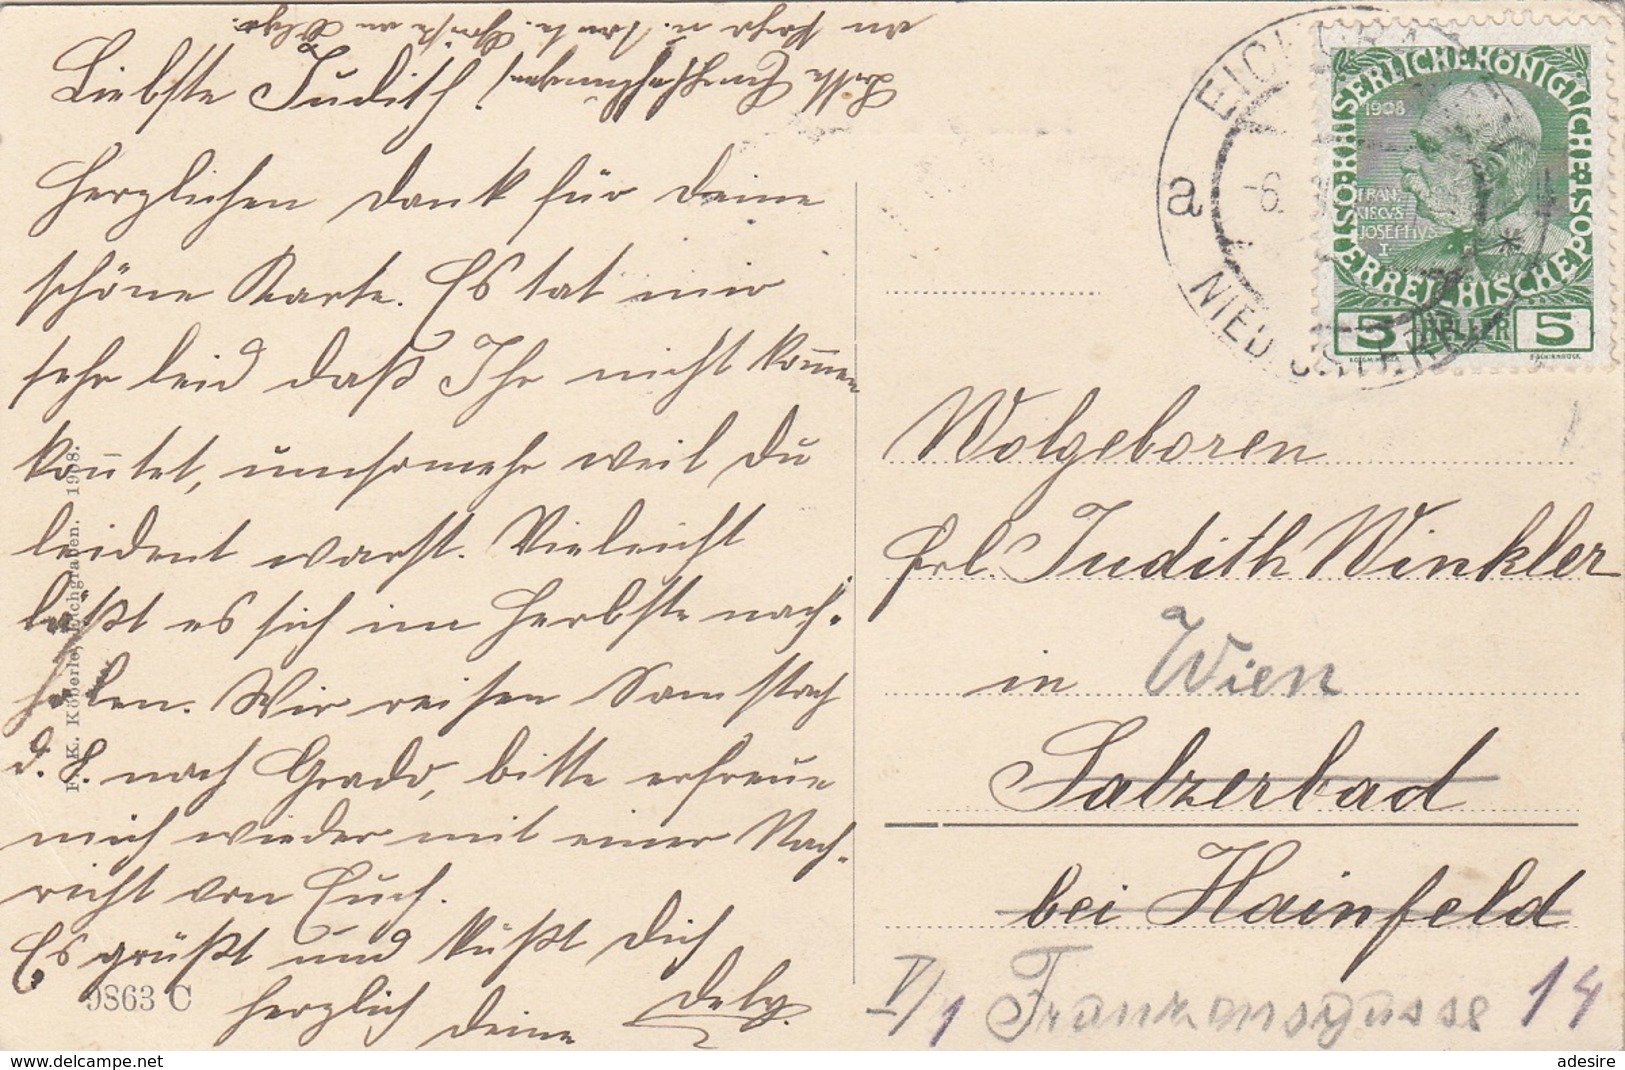 Liebste Judith!
Herzlichen Dank für Deine
schöne Karte. Es tat mir
sehr leid daß Ihr nicht kom̅en
kon̅tet, umsomehr weil Du
leident warst. Vieleicht
läßt es sich im Herbste nach-
holen. Wir reisen Samstach
d. 8. nach Grado, bitte erfreue
mich wieder mit einer Nach-
richt von Euch.
Es grüßt und küßt Dich
herzlich Deine Dely.
an Papa u. Tante. Grüße an Olga.
F. K. Köberle, Eichgraben. 1908.
9863 C
EICHGRABEN
a
-6.
NIED. ÖSTERR.
KAISERLICHE KÖNIGLICHE ÖSTERREICHISCHE POST
1908
FRAN
CISCVS
JOSEPHVS
I
5 HELLER 5
Wolgeboren
Frl. Judith Winkler
in Wien
Salzerbad
bei Hainfeld
V/1 Franzensgasse 14
My-app.delcampe.net
adesire